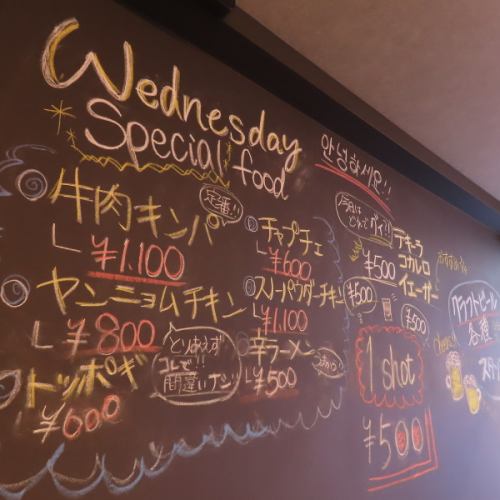 Wednesday
Special food
牛肉キンパ
定番!!
¥1.100
ヤンニョムチキン
¥800
トッポギ
¥600
とりあえず
コレで!!
間違いナシ!!
チャプチェ
¥600
スノーパウダーチキン
¥1.100
辛ラーメン
¥500
안녕하세요!!
今日は
グイッ!!
¥500
テキーラ
コカレロ
イエーガー
¥500
¥500
1 shot
¥500
Cheers!!
クラフトビール
各種